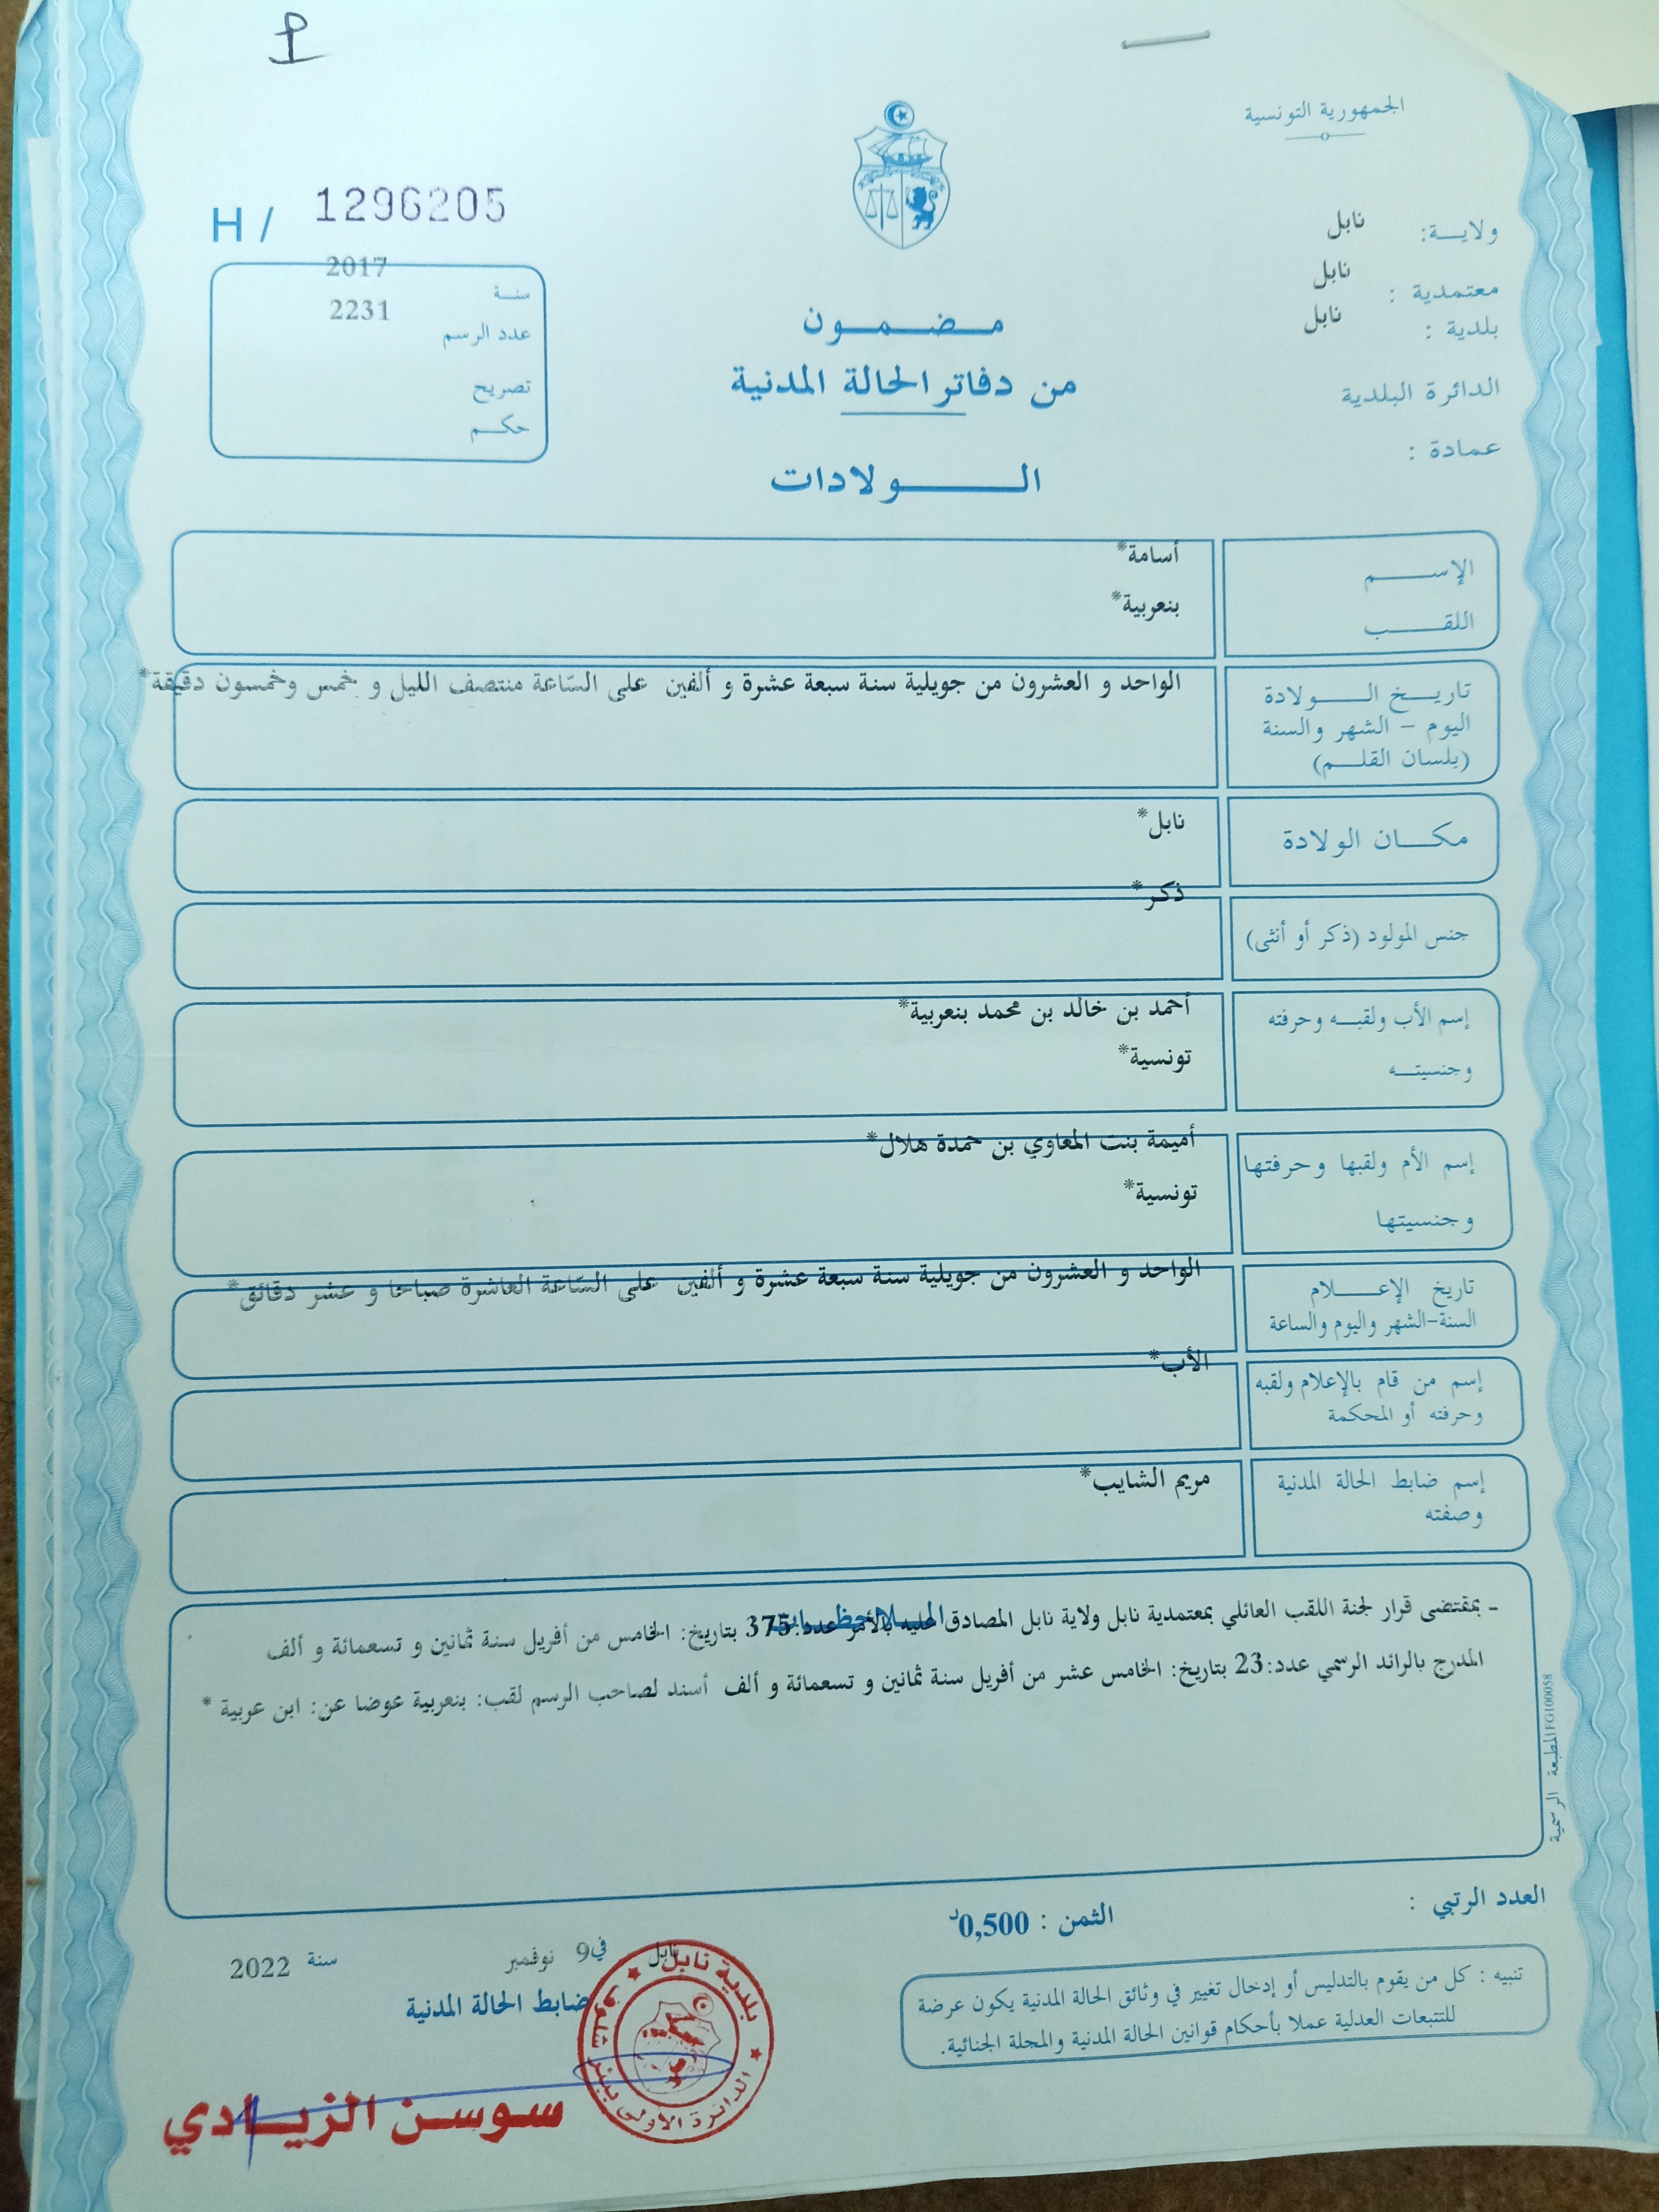 الجمهورية التونسية
ولايـــة: نابل
معتمدية : نابل
بلدية : نابل
الدائرة البلدية
عمادة :
H / 1296205
سنــة 2017
عدد الرسم 2231
تصريح
حكــم
مــضــمــون
من دفاتر الحالة المدنية
الــــولادات
الإســــم أسامة*
اللقــــب بنعربية*
تاريــخ الــــولادة الواحد و العشرون من جويلية سنة سبعة عشرة و ألفين على السّاعة منتصف الليل و خمس وخمسون دقيقة*
اليوم - الشهر والسنة
(بلسان القلــم)
مكــان الولادة نابل*
جنس المولود (ذكر أو أنثى) ذكر*
إسم الأب ولقبــه وحرفته أحمد بن خالد بن محمد بنعربية*
وجنسيتــه تونسية*
إسم الأم ولقبها وحرفتها أميمة بنت المعاوي بن حمدة هلال*
وجنسيتها تونسية*
تاريخ الإعــــلام الواحد و العشرون من جويلية سنة سبعة عشرة و ألفين على السّاعة العاشرة صباحا و عشر دقائق*
السنة-الشهر واليوم والساعة
إسم من قام بالإعلام ولقبه الأب*
وحرفته أو المحكمة
إسم ضابط الحالة المدنية مريم الشايب*
وصفته
الملاحظــات
- بمقتضى قرار لجنة اللقب العائلي بمعتمدية نابل ولاية نابل المصادق عليه بالأمر عدد:375 بتاريخ: الخامس من أفريل سنة ثمانين و تسعمائة و ألف
المدرج بالرائد الرسمي عدد:23 بتاريخ: الخامس عشر من أفريل سنة ثمانين و تسعمائة و ألف أسند لصاحب الرسم لقب: بنعربية عوضا عن: ابن عربية *
المطبعة الرسمية FG100058
العدد الرتبي :
الثمن : 0,500د
تنبيه : كل من يقوم بالتدليس أو إدخال تغيير في وثائق الحالة المدنية يكون عرضة
للتتبعات العدلية عملا بأحكام قوانين الحالة المدنية والمجلة الجنائية.
نابل في 9 نوفمبر سنة 2022
ضابط الحالة المدنية
بلدية نابل
الدائرة الأولى ببئر شلوف
سوسن الزيادي